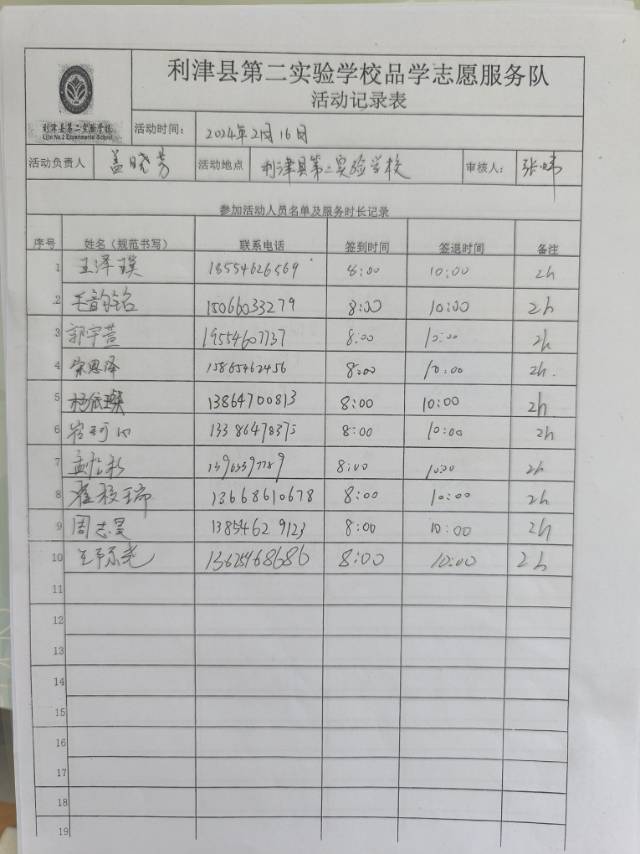 利津县第二实验学校品学志愿服务队
活动记录表
利津县第二实验学校
Lijin No.2 Experimental School
活动时间： 2024年2月16日
活动负责人 盖晓芳 活动地点 利津县第二实验学校 审核人： 张
参加活动人员名单及服务时长记录
序号 姓名（规范书写） 联系电话 签到时间 签退时间 备注
1 王泽璞 15554626569 8:00 10:00 2h
2 毛韵铭 15066033279 8:00 10:00 2h
3 郭宇萱 19554607137 8:00 10:00 2h
4 宋恩泽 15865462456 8:00 10:00 2h.
5 13864700813 8:00 10:00 2h
6 13386478375 8:00 10:00 2h
7 8:00 10:00 2h
8 13668610678 8:00 10:00 2h
9 周志昊 13854629123 8:00 10:00 2h
10 13625468686 8:00 10:00 2h
11
12
13
14
15
16
17
18
19